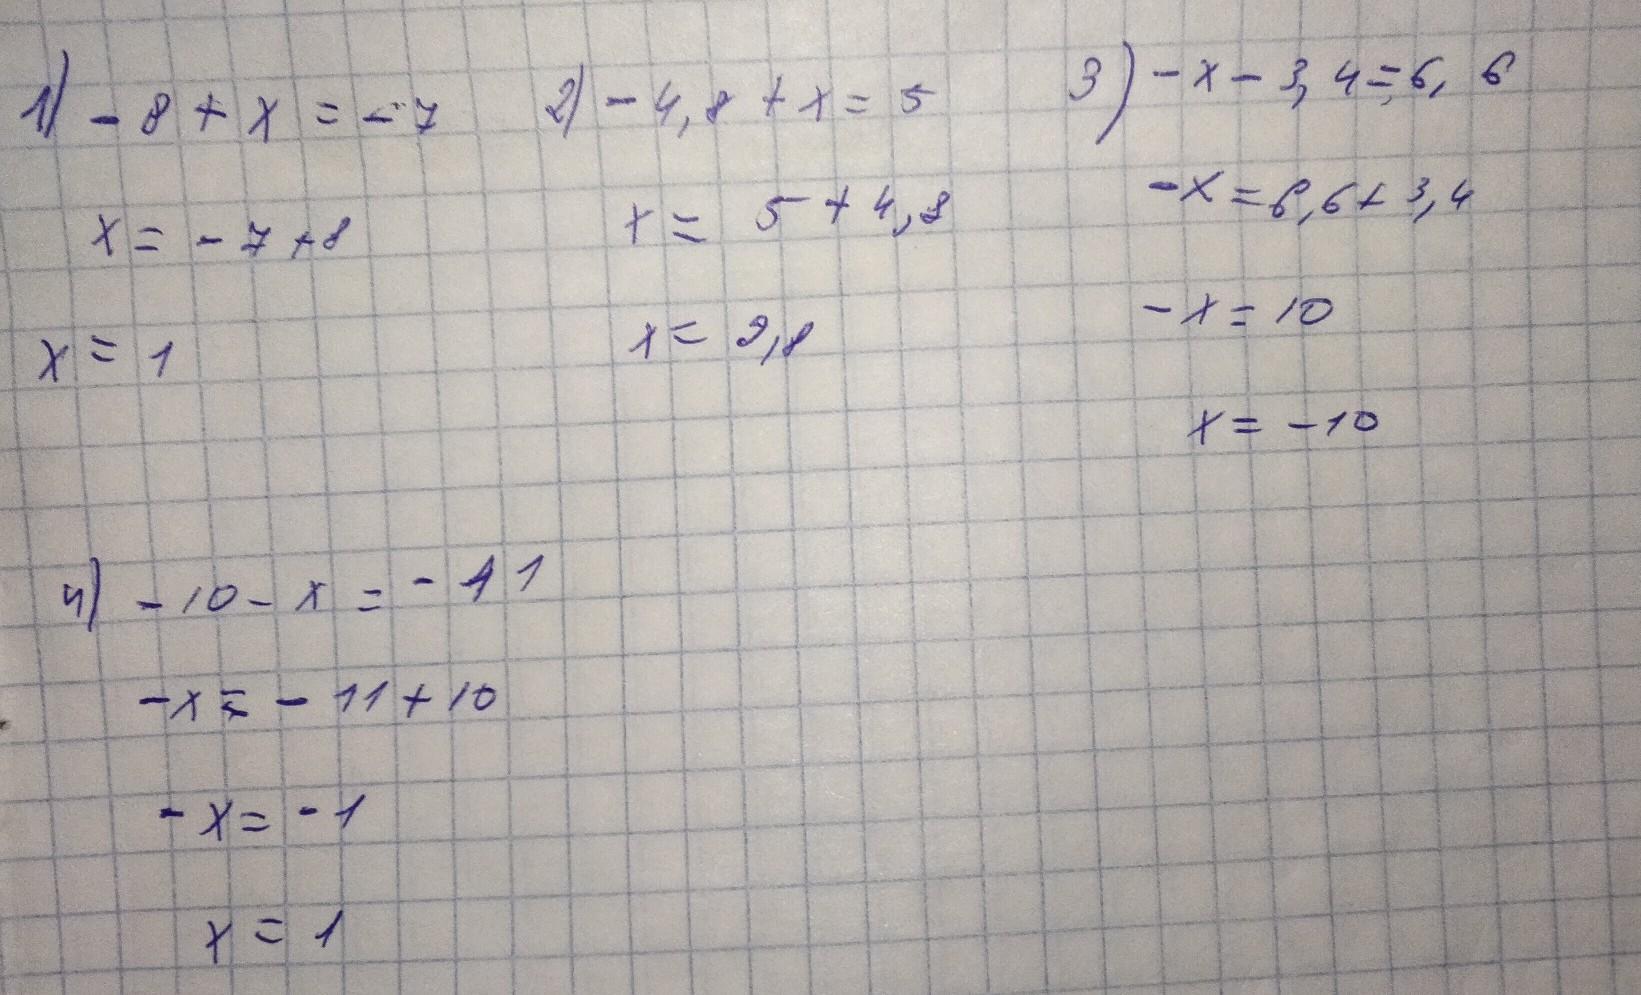 1) - 8 + x = - 7
x = - 7 + 8
x = 1
2) - 4,8 + x = 5
x = 5 + 4,8
x = 9,8
3) - x - 3,4 = 6,6
- x = 6,6 + 3,4
- x = 10
x = - 10
4) - 10 - x = - 11
- x = - 11 + 10
- x = - 1
x = 1